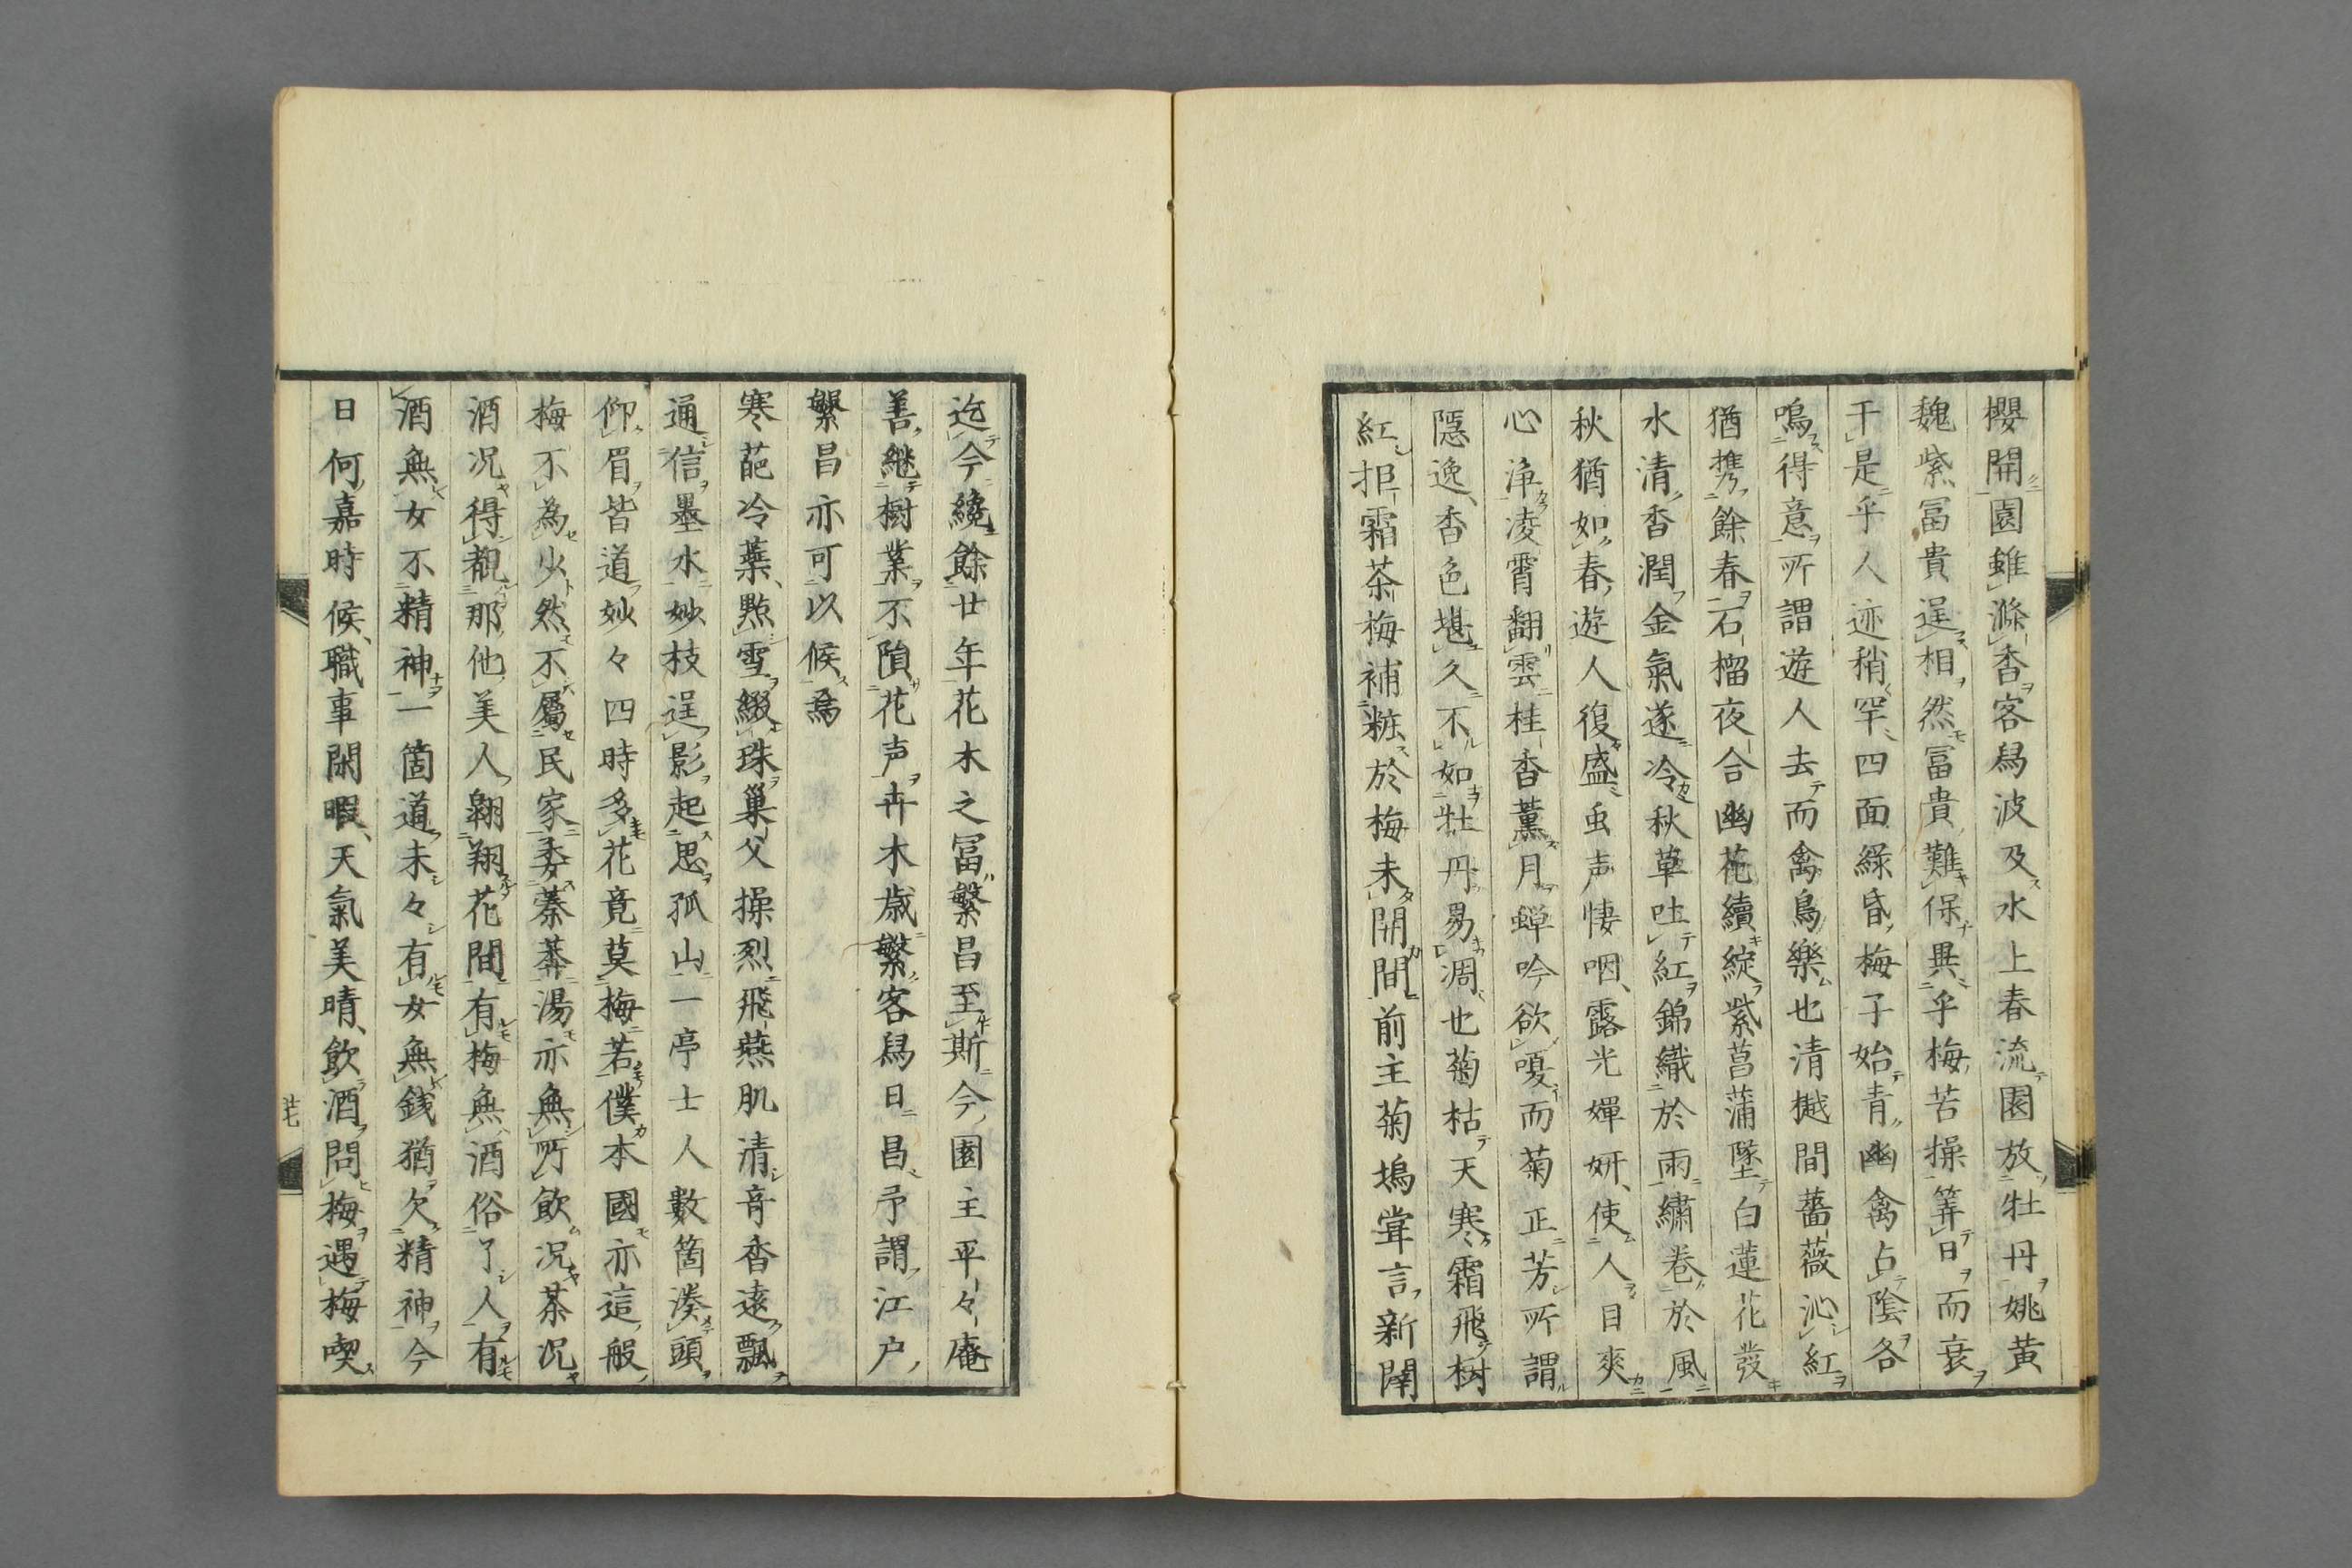 櫻開園雖滌香客舄波及水上春流園放牡丹姚黄
魏紫冨貴逞相然冨貴難保異乎梅苦操筭日而衰
于是乎人迹稍罕四面緑昏梅子始青幽禽占陰各
鳴得意所謂遊人去而禽鳥樂也清樾間薔薇沁紅
猶携餘春石榴夜合幽花續綻紫菖蒲墜白蓮花發
水清香潤金氣遂冷秋草吐紅錦織於雨繡巻於風
秋猶如春遊人復盛虫声悽咽露光嬋妍使人目爽
心浄凌霄翻雲桂香薫月蝉吟欲嗄而菊正芳所謂
隠逸香色堪久不如牡丹易凋也菊枯天寒霜飛樹
紅拒霜茶梅補粧於梅未開間前主菊塢甞言新闢
迄今纔餘廿年花木之冨繁昌至斯今園主平々庵
善継樹業不隕花声卉木歳繁客舄日昌予謂江戸
繁昌亦可以候焉
寒葩冷蘂點雪綴珠巣父操烈飛燕肌清音香遠飄
通信墨水妙枝逞影起思孤山一亭士人數箇湊頭
仰眉皆道妙々四時多花竟莫梅若僕本國亦這般
梅不為少然不屬民家委蓁莽湯亦無所飲况茶况
酒况得覯那他美人翺翔花間有梅無酒俗了人有
酒無女不精神一箇道未々有女無銭猶欠精神今
日何嘉時候職事閑暇天氣美晴飲酒問梅遇梅喫
廿七